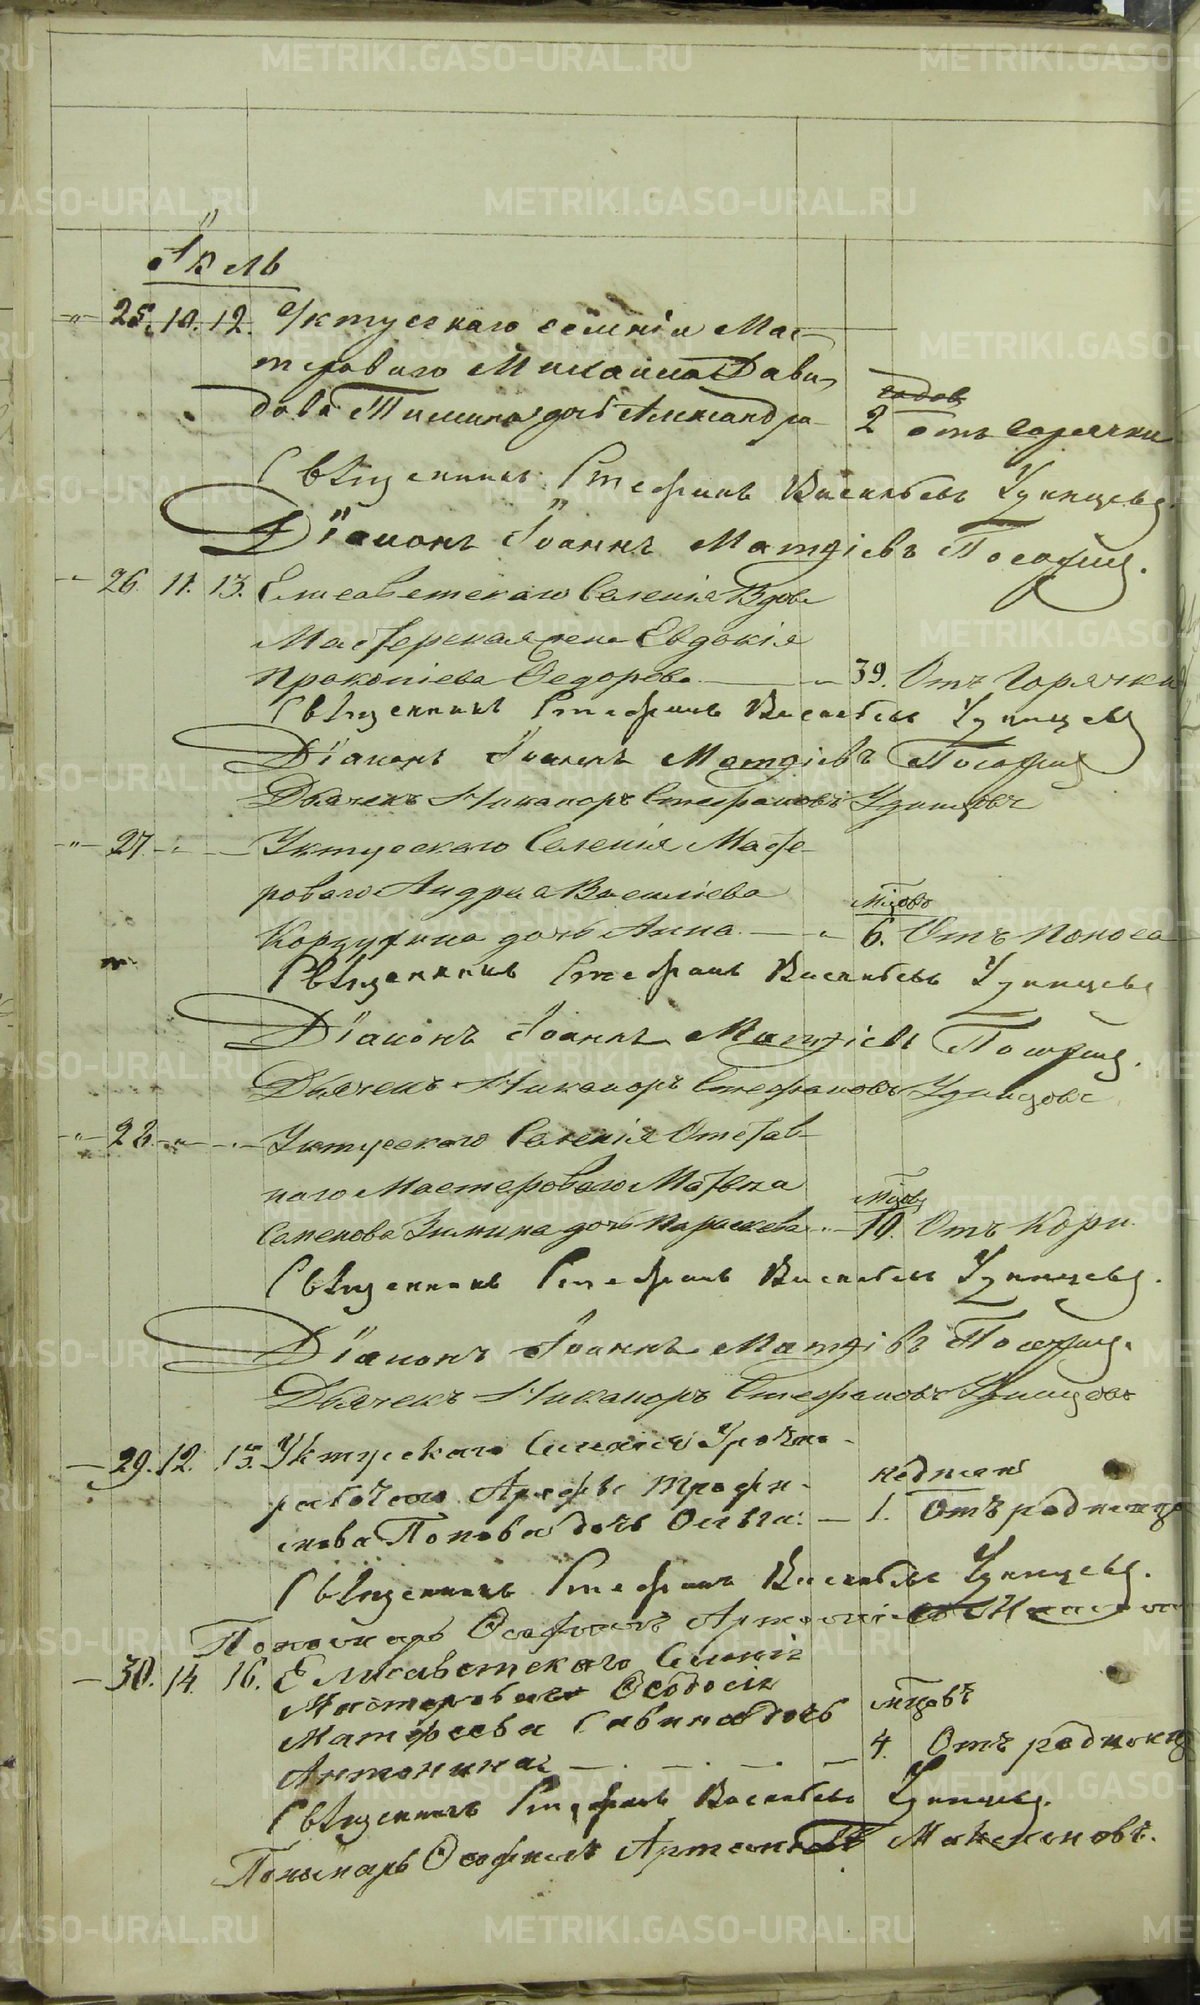 Іюль
25. 10. 12. Уктусскаго селенія Мас-
тероваго Михаила Дави-
дова дочь Александра
годовъ
2 отъ горячки
Священникъ Стефанъ Васильевъ Удинцевъ
Діаконъ Іоаннъ Матѳіевъ
26. 11. 13. Елисаветскаго Селенія Вдова
Мастерская жена Евдокія
Прокопіева Ѳедорова 39. Отъ Горячки
Священникъ Стефанъ Васильевъ Удинцевъ
Діаконъ Іоаннъ Матѳіевъ
Дьячекъ Никаноръ Стефановъ Удинцовъ
27. Уктусскаго Селенія Масте-
роваго Андрея Василіева
дочь Анна
мѣсцовъ
6. Отъ поноса
Священникъ Стефанъ Васильевъ Удинцевъ
Діаконъ Іоаннъ Матѳіевъ
Дьячекъ Никаноръ Стефановъ Удинцовъ
28. Уктусскаго Селенія Отстав-
наго Мастероваго Матвѣя
Семенова Зимина дочь Параскева
мѣсцовъ
10. Отъ Кори
Священникъ Стефанъ Васильевъ Удинцевъ.
Діаконъ Іоаннъ Матѳіевъ
Дьячекъ Никаноръ Стефановъ Удинцовъ
29. 12. 15. Уктусскаго Селенія Урочно-
рабочаго Трофи-
мова Попова дочь Ольга.
недѣли
1. Отъ родимца
Священникъ Стефанъ Васильевъ Удинцевъ.
Пономарь Ѳеофилъ
30. 14. 16. Елисаветскаго Селенія
Мастероваго Ѳеодосія
Матфеева Савина дочь
мѣсцовъ
Антонина 4. Отъ родимца
Священникъ Стефанъ Васильевъ Удинцевъ.
Пономарь Ѳеофилъ
METRIKI.GASO-URAL.RU